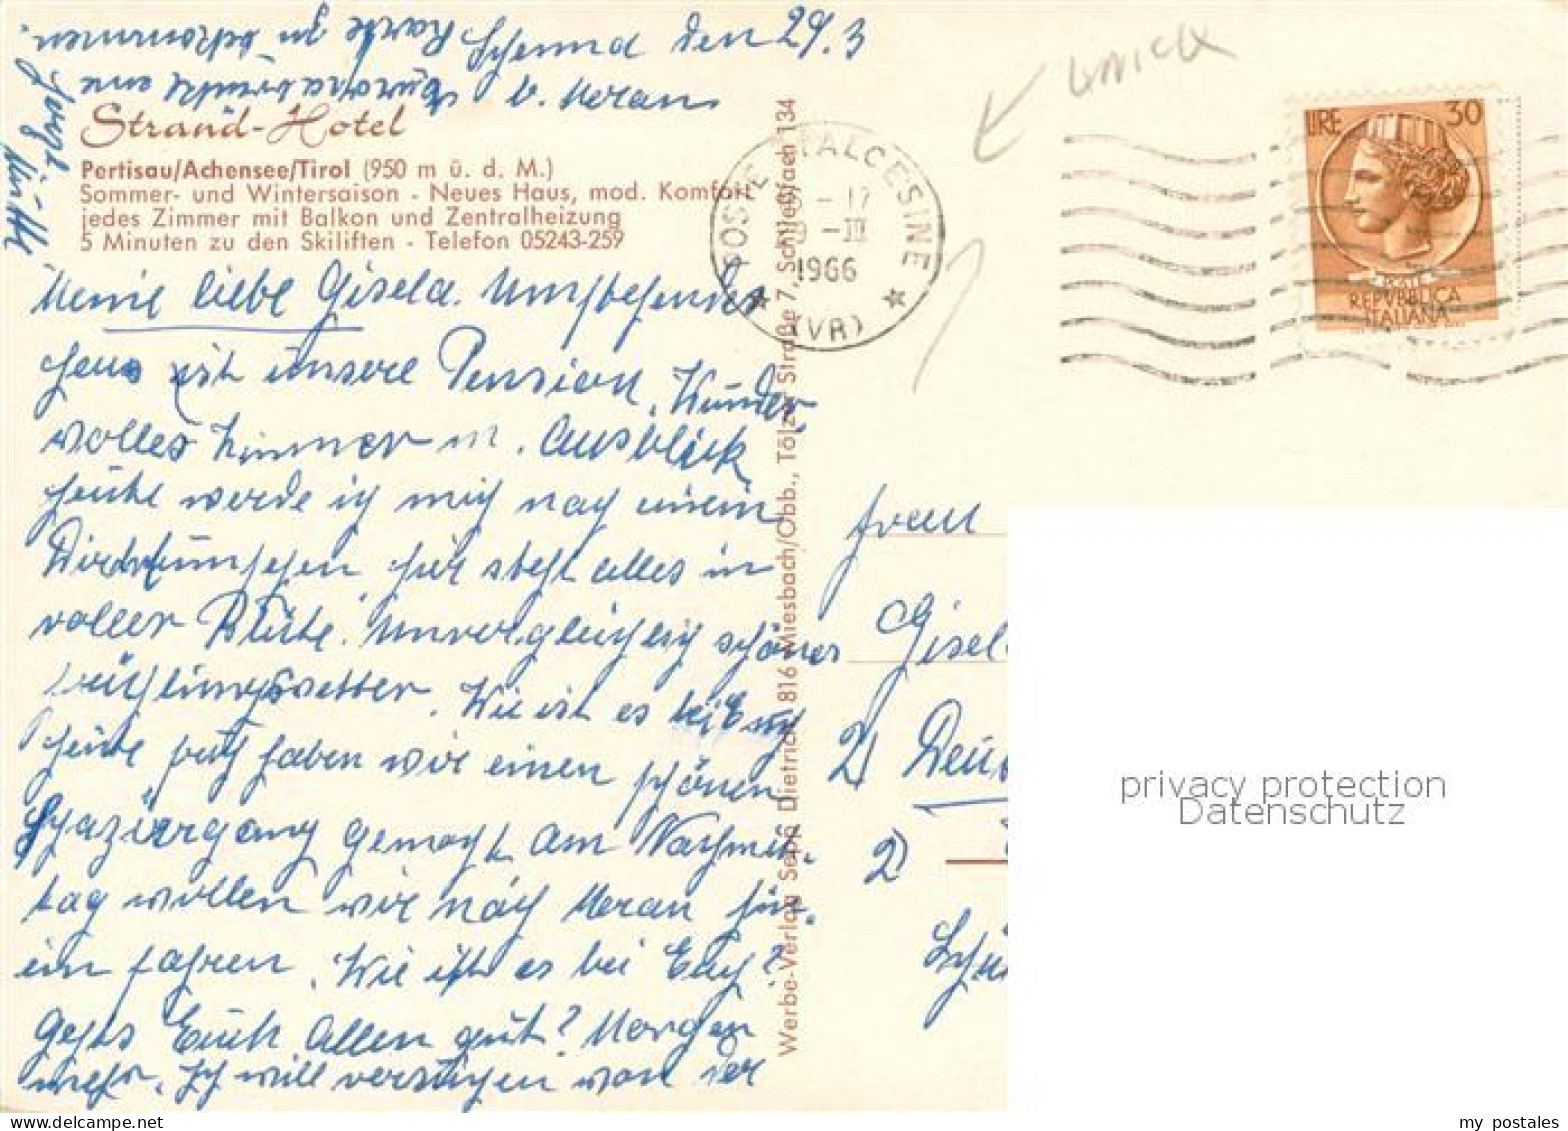 Schenna den 29.3
b. Meran
Strand-Hotel
Pertisau/Achensee/Tirol (950 m ü. d. M.)
Sommer- und Wintersaison - Neues Haus, mod. Komfort
jedes Zimmer mit Balkon und Zentralheizung
5 Minuten zu den Skiliften - Telefon 05243-259
Meine liebe Gisela. Umstehendes
ist unsere Pension. Wunder
volles Zimmer m. Ausblick
heute werde ich mich nach einem
umsehen hier steht alles in
voller Blüte. Unvergleichlich schönes
Frühlingswetter. Wie ist es bei Euch
heute früh haben wir einen schönen
Spaziergang gemacht am Nachmit-
tag wollen wir nach Meran hin-
ein fahren. Wie ist es bei Euch?
Gehts Euch Allen gut? Morgen
mehr. Ich will versuchen von der
Europabrücke eine
Karte zu bekommen.
Werbe-Verlag Sepp Dietrich, 816 Miesbach/Obb., Tölzer Straße 7, Schließfach 134
POSTE MALCESINE
-17
-III
1966
(VR)
LIRE 30
REPVBBLICA
ITALIANA
Frau
Gisel
21 Deu
2)
Schü
privacy protection
Datenschutz
my postales